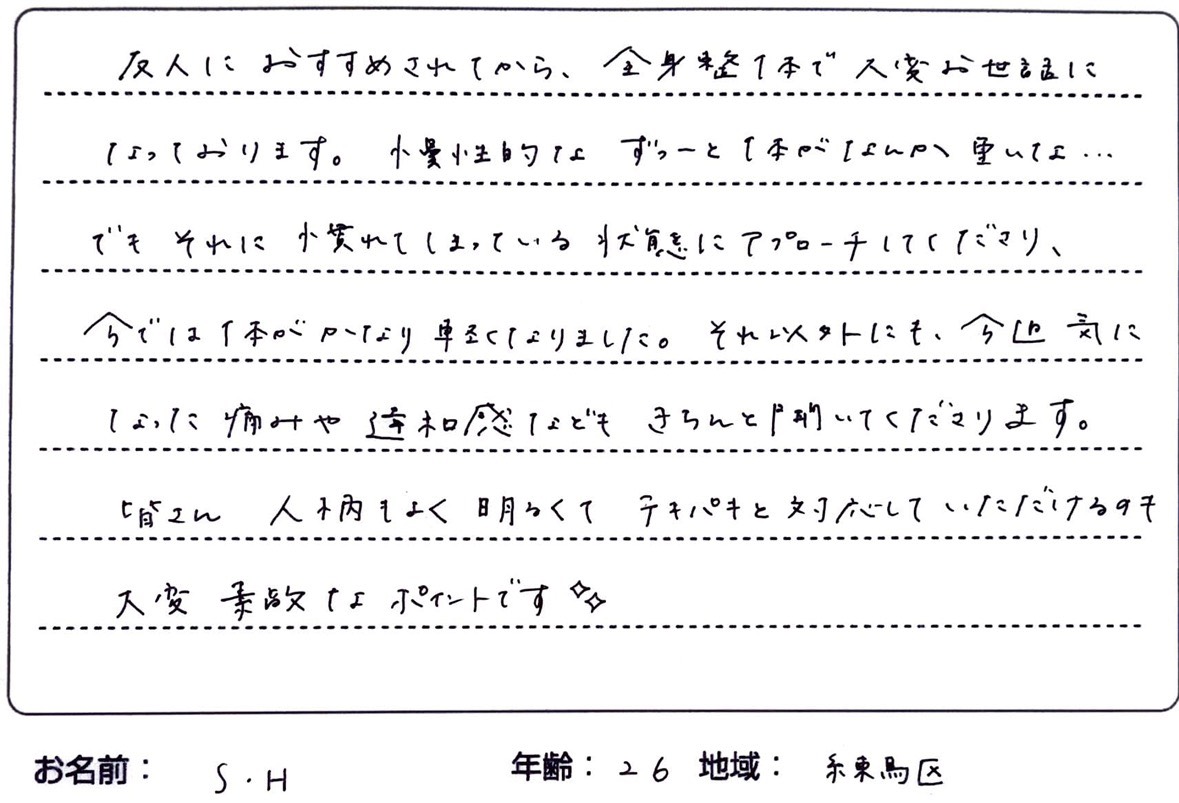 友人におすすめされてから、全身整体で大変お世話に
なっております。慢性的な ずっーと体がなんか重いな…
でも それに慣れてしまっている状態にアプローチしてくださり、
今では体がかなり軽くなりました。それ以外にも、今迄気に
なった痛みや違和感などもきちんと聞いてくださります。
皆さん 人柄もよく明るくて テキパキと対応していただけるのも
大変素敵なポイントです✨
お名前： S.H 年齢： 26 地域： 練馬区